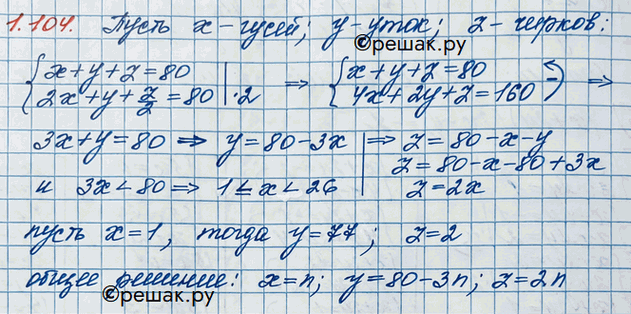 1.104. Пусть x - гусей; y - уток; z - чирков:
©решак.ру
{ x+y+z=80 | ⇒ { x+y+z=80 ⇒
2x+y+z/2=80 | ·2 4x+2y+z=160 ) -
3x+y=80 ⇒ y=80-3x | ⇒ z=80-x-y
z=80-x-80+3x
и 3x<80 ⇒ 1≤x<26 | z=2x
пусть x=1, тогда y=77; z=2
общее решение: x=n; y=80-3n; z=2n
©решак.ру